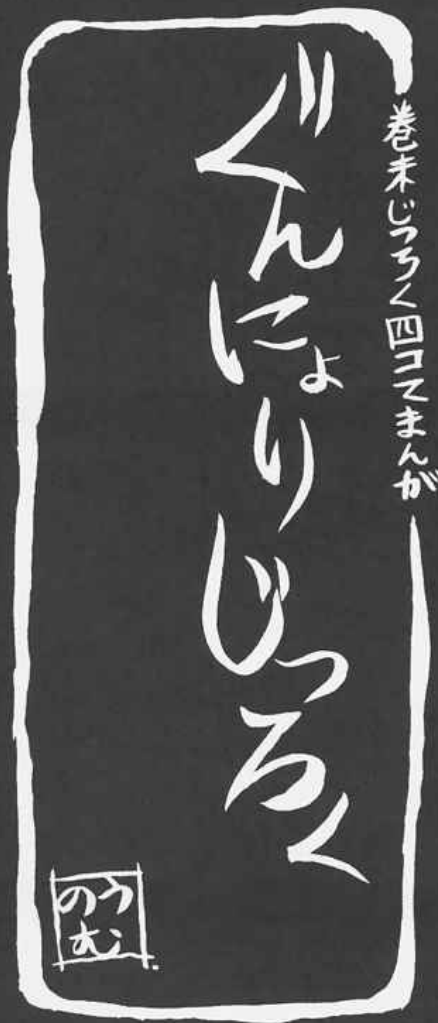 巻末じつろく四コマまんが
ぐんにょりじつろく
のう
む